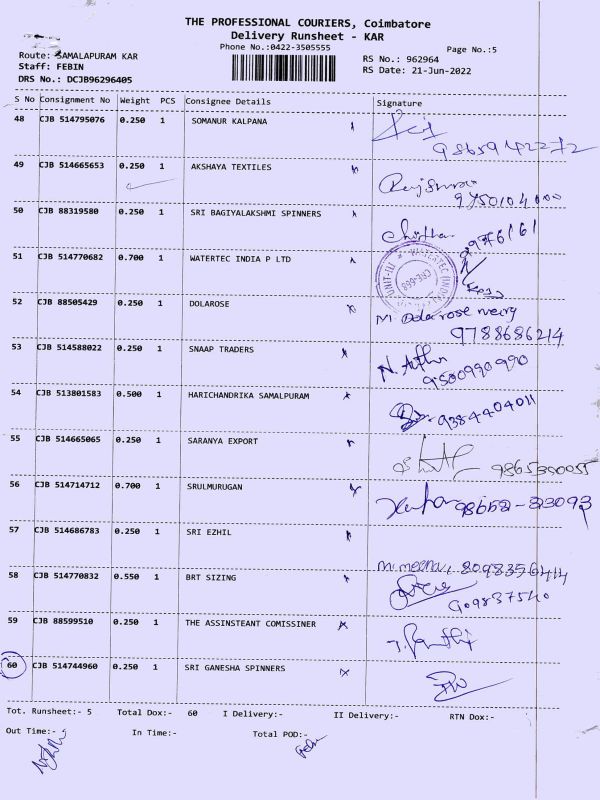 THE PROFESSIONAL COURIERS, Coimbatore
Delivery Runsheet - KAR
Phone No.:0422-3505555
Page No.:5
Route: SAMALAPURAM KAR
RS No.: 962964
Staff: FEBIN
RS Date: 21-Jun-2022
DRS No.: DCJB96296405
S No Consignment No Weight PCS Consignee Details Signature
48 CJB 514795076 0.250 1 SOMANUR KALPANA
9865942272
49 CJB 514665653 0.250 1 AKSHAYA TEXTILES
9750104000
50 CJB 88319580 0.250 1 SRI BAGIYALAKSHMI SPINNERS
51 CJB 514770682 0.700 1 WATERTEC INDIA P LTD
52 CJB 88505429 0.250 1 DOLAROSE M. Dolarose mery
9788686214
53 CJB 514588022 0.250 1 SNAAP TRADERS
9500990990
54 CJB 513801583 0.500 1 HARICHANDRIKA SAMALPURAM 9384404011
55 CJB 514665065 0.250 1 SARANYA EXPORT
56 CJB 514714712 0.700 1 SRULMURUGAN
57 CJB 514686783 0.250 1 SRI EZHIL
M. meena, 8098356414
58 CJB 514770832 0.550 1 BRT SIZING
59 CJB 88599510 0.250 1 THE ASSINSTEANT COMISSINER
60 CJB 514744960 0.250 1 SRI GANESHA SPINNERS
Tot. Runsheet:- 5 Total Dox:- 60 I Delivery:- II Delivery:- RTN Dox:-
Out Time:- In Time:- Total POD:-